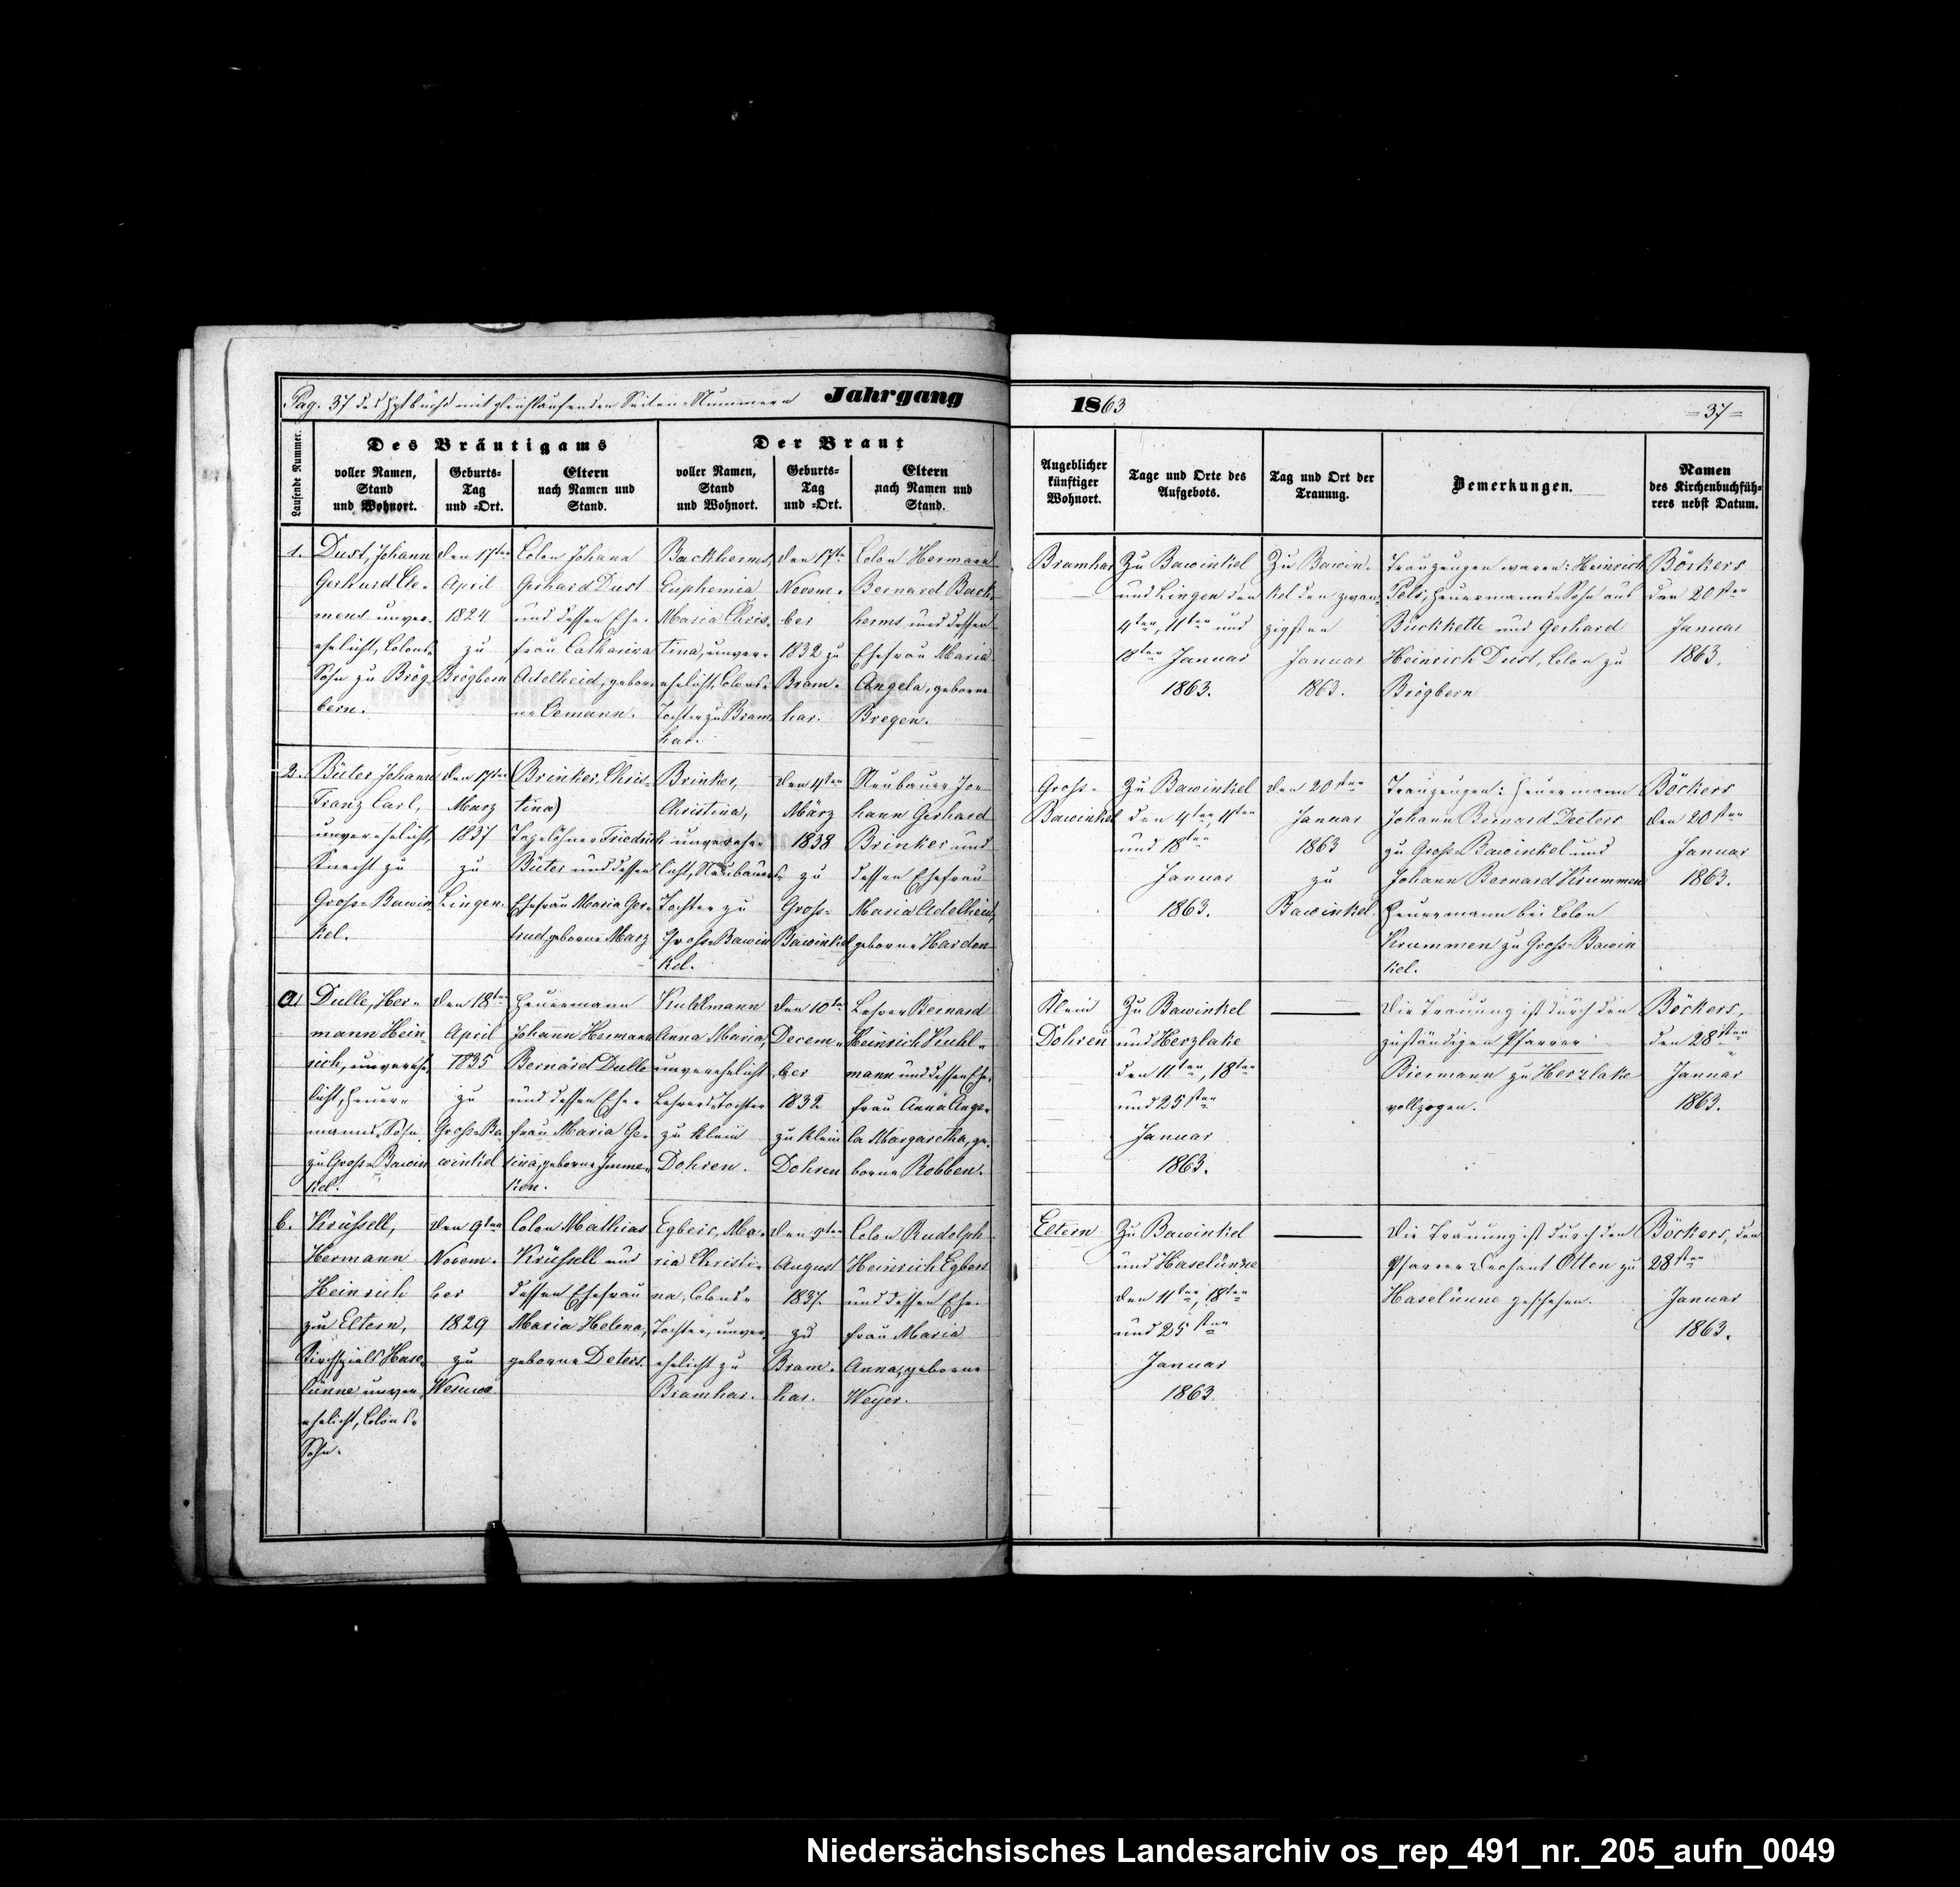 Pag. 37 des Hptbuchs mit gleichlaufenden Seiten-Nummern
Jahrgang
1863
=37=
Laufende Nummer.
Des Bräutigams
voller Namen,
Stand
und Wohnort.
Geburts-
Tag
und -Ort.
Eltern
nach Namen und
Stand.
Der Braut
voller Namen,
Stand
und Wohnort.
Geburts-
Tag
und -Ort.
Eltern
nach Namen und
Stand.
Angeblicher
künftiger
Wohnort.
Tage und Orte des
Aufgebots.
Tag und Ort der
Trauung.
Bemerkungen.
Namen
des Kirchenbuchfüh-
rers nebst Datum.
1.
Dust, Johann
Gerhard Cle-
mens unver-
ehelicht, Colons-
Sohn zu Brög-
bern.
den 17ten
April
1824
zu
Brögbern
Colon Johann
Gerhard Dust
und dessen Ehe-
frau Catharina
Adelheid, gebor-
ne Oemann.
Backherms,
Euphemia
Maria Chris-
tina, unver-
ehelicht, Colons-
Tochter zu Bram-
har.
den 17te
Novem-
ber
1832 zu
Bram-
har.
Colon Hermann
Bernard Back-
herms und dessen
Ehefrau Maria
Angela, geborne
Bregen.
Bramhar
Zu Bawinkel
und Lingen den
4ten, 11ten und
18ten Januar
1863.
Zu Bawin-
kel den zwan-
zigsten
Januar
1863.
Trauzeugen waren: Heinrich
Pels, Heuermanns-Sohn aus
Bückkette und Gerhard
Heinrich Dust, Colon zu
Brögbern
Böckers
den 20sten
Januar
1863.
2.
Büter Johann
Franz Carl,
unverehelicht,
Knecht zu
Groß-Bawin-
kel.
den 17ten
Marz
1837
zu
Lingen.
(Brinker, Chris-
tina)
Tagelöhner Friedrich
Büter und dessen
Ehefrau Maria Ger-
trud geborne Marz
Brinker,
Christina,
unverehe-
licht, Neubauers-
Tochter zu
Groß-Bawin-
kel.
den 4ten
März
1838
zu
Groß-
Bawinkel
Neubauer Jo-
hann Gerhard
Brinker und
dessen Ehefrau
Maria Adelheid,
geborne Harden-
Groß-
Bawinkel
Zu Bawinkel
den 4ten, 11ten
und 18ten
Januar
1863.
den 20sten
Januar
1863
zu
Bawinkel.
Trauzeugen: Heuermann
Johann Bernard Deeters
zu Groß-Bawinkel und
Johann Bernard Krummen
Heuermann bei Colon
Krummen zu Groß-Bawin
kel.
Böckers
den 20sten
Januar
1863.
a.
Dulle, Her-
mann Hein-
rich, unverehe-
licht, Heuer-
manns-Sohn
zu Groß-Bawin
kel.
den 18ten
April
1835
zu
Groß-Ba-
winkel
Heuermann
Johann Hermann
Bernard Dulle
und dessen Ehe-
frau Maria Ge-
sina, geborne Imme-
ken.
Kuhlmann
Anna Maria,
unverehelicht
Lehrers-Tochter
zu Klein
Dohren.
den 10te
Decem-
ber
1832
zu Klein
Dohren
Lehrer Bernard
Heinrich Kuhl-
mann und dessen Ehe-
frau Anna Ange-
la Margaretha, ge-
borne Robben.
Klein
Dohren
Zu Bawinkel
und Herzlake
den 11ten, 18ten
und 25sten
Januar
1863.
Die Trauung ist durch den
zuständigen Pfarrer
Biermann zu Herzlake
vollzogen.
Böckers,
den 28sten
Januar
1863.
b.
Krüssell,
Hermann
Heinrich
zu Eltern,
Kirchspiels Hase-
lünne unver-
ehelicht, Colons-
Sohn.
den 9ten
Novem-
ber
1829
zu
Colon Mathias
Krüssell und
dessen Ehefrau
Maria Helena,
geborne Deters.
Egbers, Ma-
ria Christi-
na, Colons-
Tochter, unver-
ehelicht zu
Bramhar.
August
1837.
zu
Bram-
har.
Colon Rudolph
Heinrich Egbers
und dessen Ehe-
frau Maria
Anna, geborne
Weyer.
Eltern
Zu Bawinkel
und Haselünne
den 11ten, 18ten
und 25sten
Januar
1863.
Die Trauung ist durch den
Pfarrer Dechant Otten zu
Haselünne geschehen.
Böckers, den
28sten
Januar
1863.
Niedersächsisches Landesarchiv os_rep_491_nr._205_aufn_0049